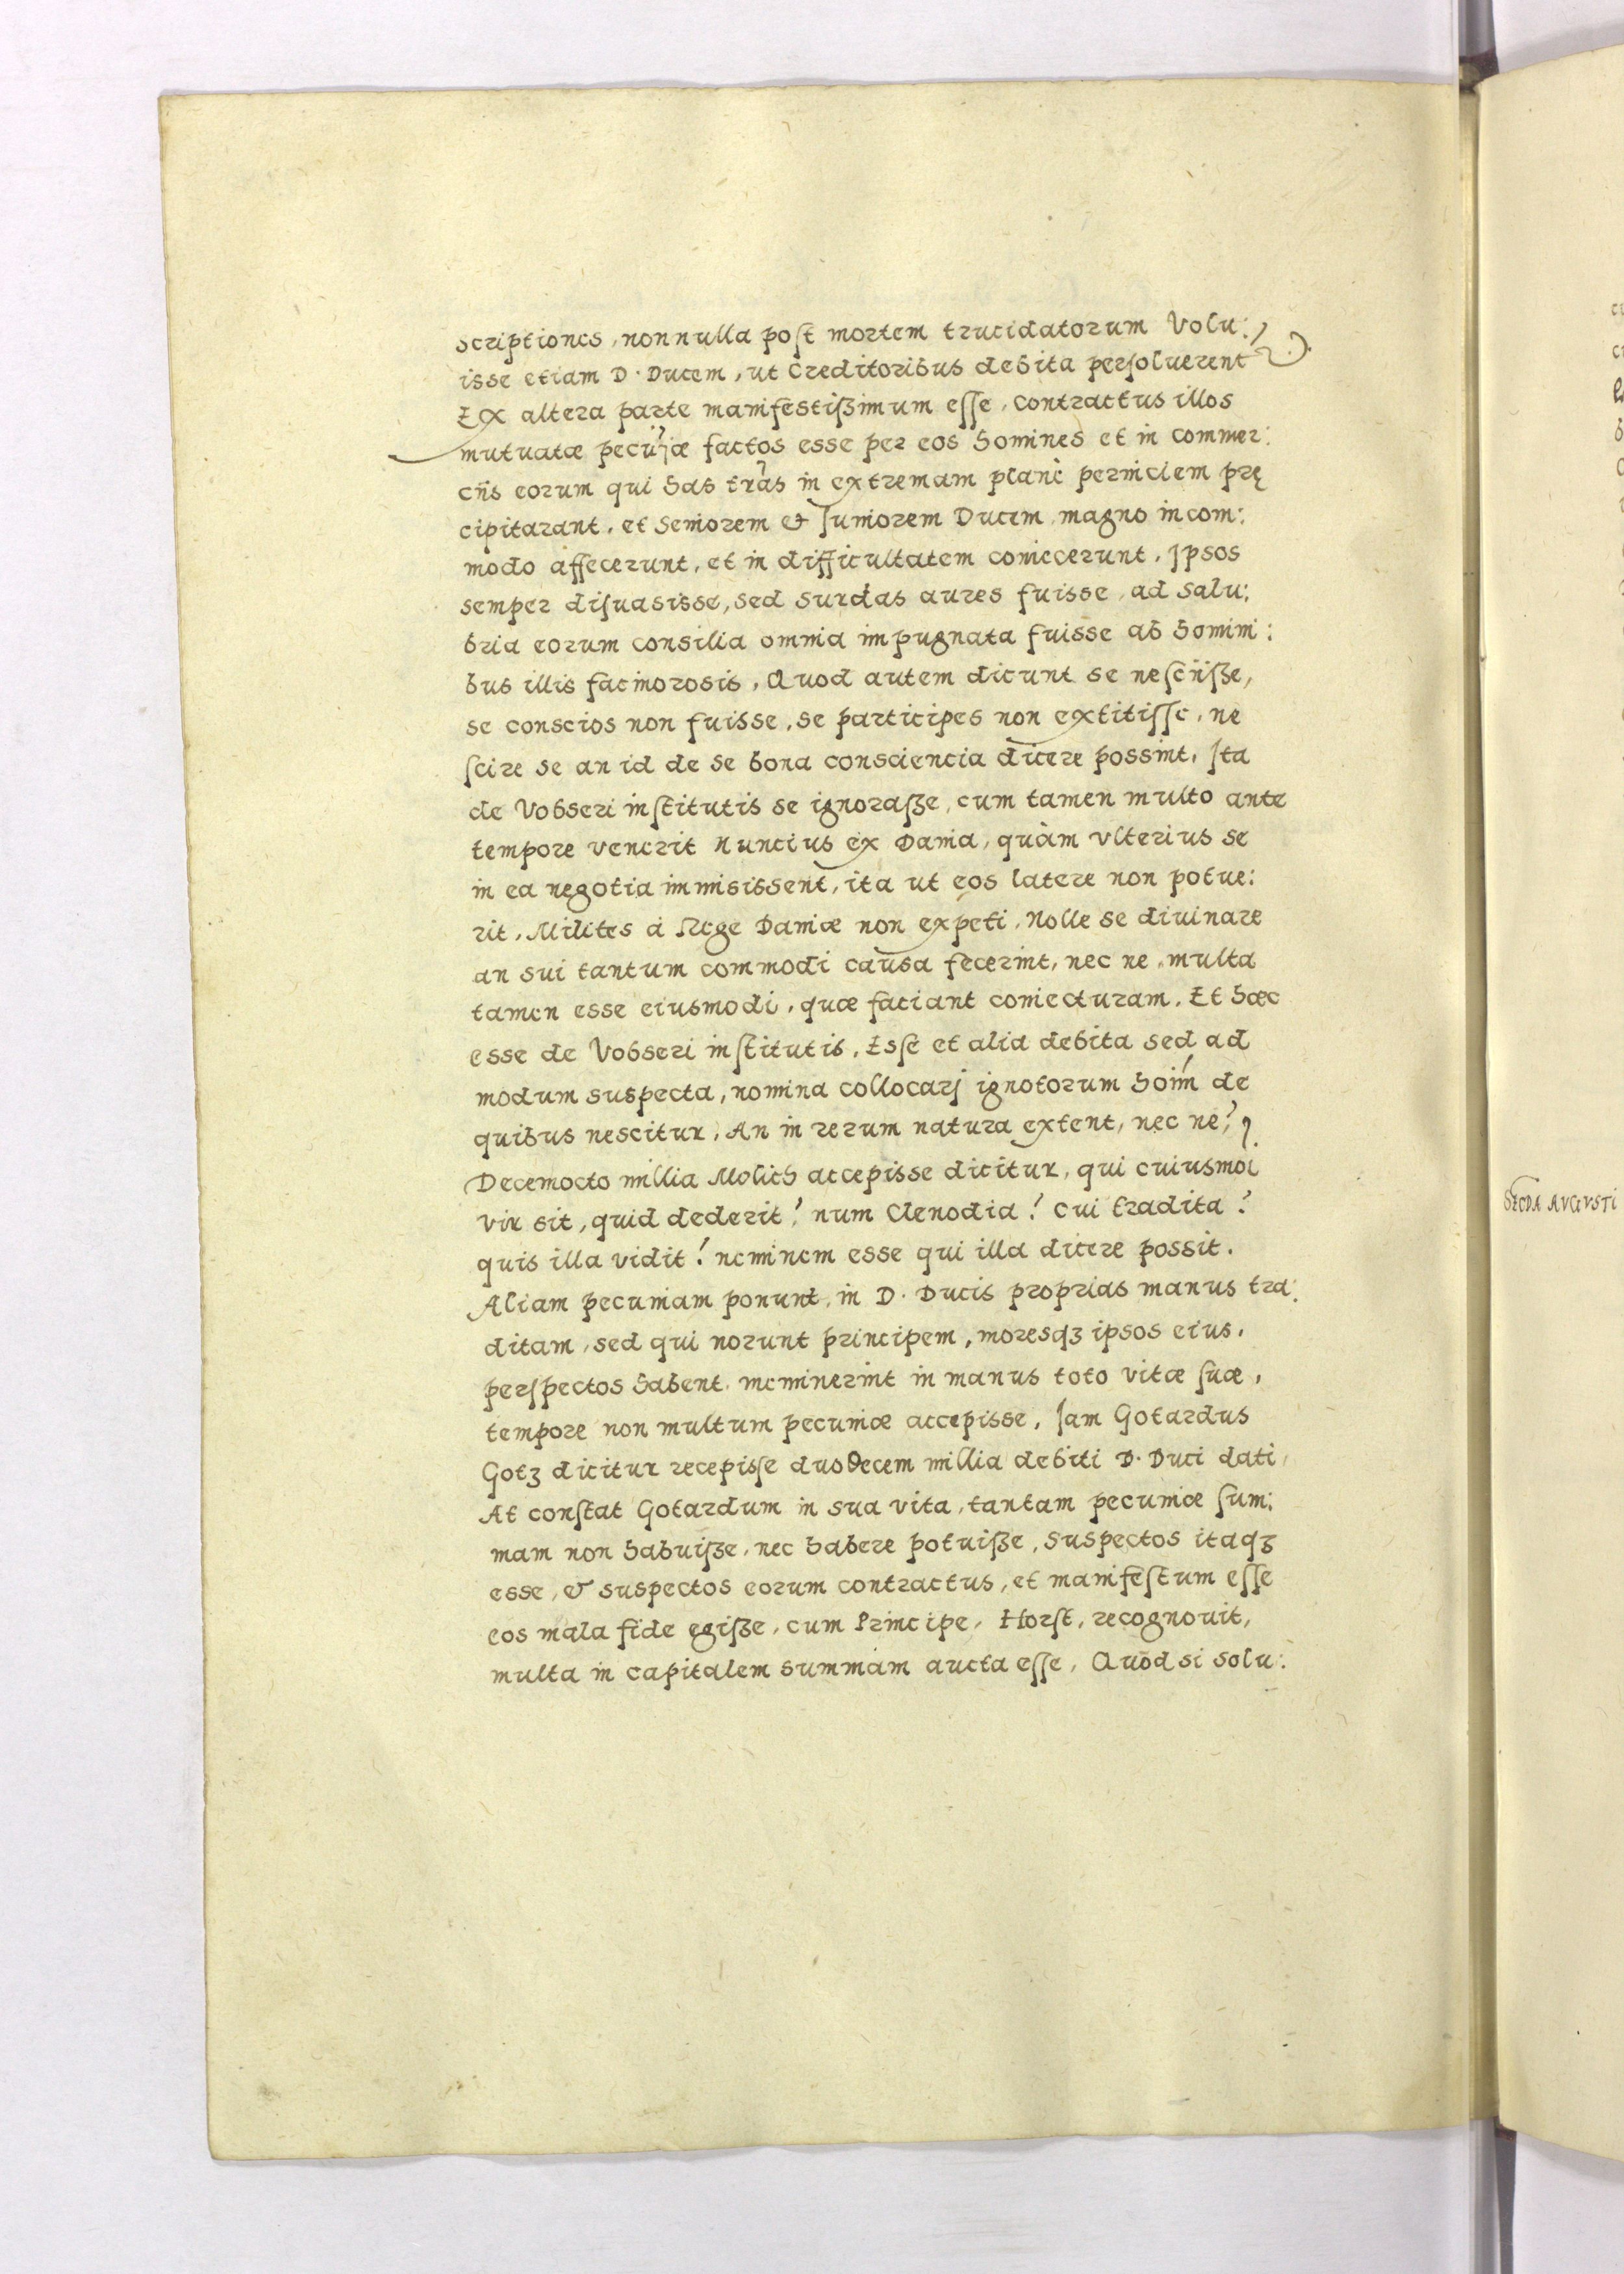 scriptiones, nonnulla post mortem trucidatorum Volu:
isse etiam D. Ducem, ut Creditoribus debita persoluerent
Ex altera parte manifestißimum esse, contractus illos
mutuatæ pecu̅iæ factos esse per eos homines et in commer:
ciis eorum qui has tr̃as in extremam planè perniciem prę
cipitarant, et Seniorem & Juniorem Ducem magno incom:
modo affecerunt, et in difficultatem coniecerunt, Ipsos
semper disuasisse, sed surdas aures fuisse, ad salu:
bria eorum consilia omnia impugnata fuisse ab homini:
bus illis facinorosis, Quod autem dicunt se nesciiße,
se conscios non fuisse, se participes non extitisse, ne
scire se an id de se bona consciencia dicere possint, Ita
de Vobseri institutis se ignoraße, cum tamen multo ante
tempore venerit Nuncius ex Dania, quàm vlterius se
in ea negotia immisissent, ita ut eos latere non potue:
rit, Milites à Rege Daniæ non expeti, Nolle se diuinare
an sui tantum commodi causa fecerint, nec ne, multa
tamen esse eiusmodi, quæ faciant coniecturam, Et hæc
esse de Vobseri institutis, Esse et alia debita sed ad
modum suspecta, nomina collocari ignotorum hoim̅ de
quibus nescitur, An in rerum natura extent, nec ne?
Decemocto millia Molich accepisse dicitur, qui cuiusmoi
vir sit, quid dederit? num Clenodia? Cui tradita?
quis illa vidit? neminem esse qui illa dicere possit.
Aliam pecuniam ponunt, in D. Ducis proprias manus tra:
ditam, sed qui norunt principem, moresqꝫ ipsos eius,
perspectos habent, meminerint in manus toto vitæ suæ,
tempore non multum pecuniæ accepisse, Iam Gotardus
Gotz dicitur recepisse duodecem millia debiti D. Duci dati,
At constat Gotardum in sua vita, tantam pecuniæ sum:
mam non habuiße, nec habere potuiße, suspectos itaqꝫ
esse, & suspectos eorum contractus, et manifestum esse
eos mala fide egiße, cum Principe, Horst, recognouit,
multa in capitalem summam aucta esse, Quod si solu:
SECDA AVGVSTI